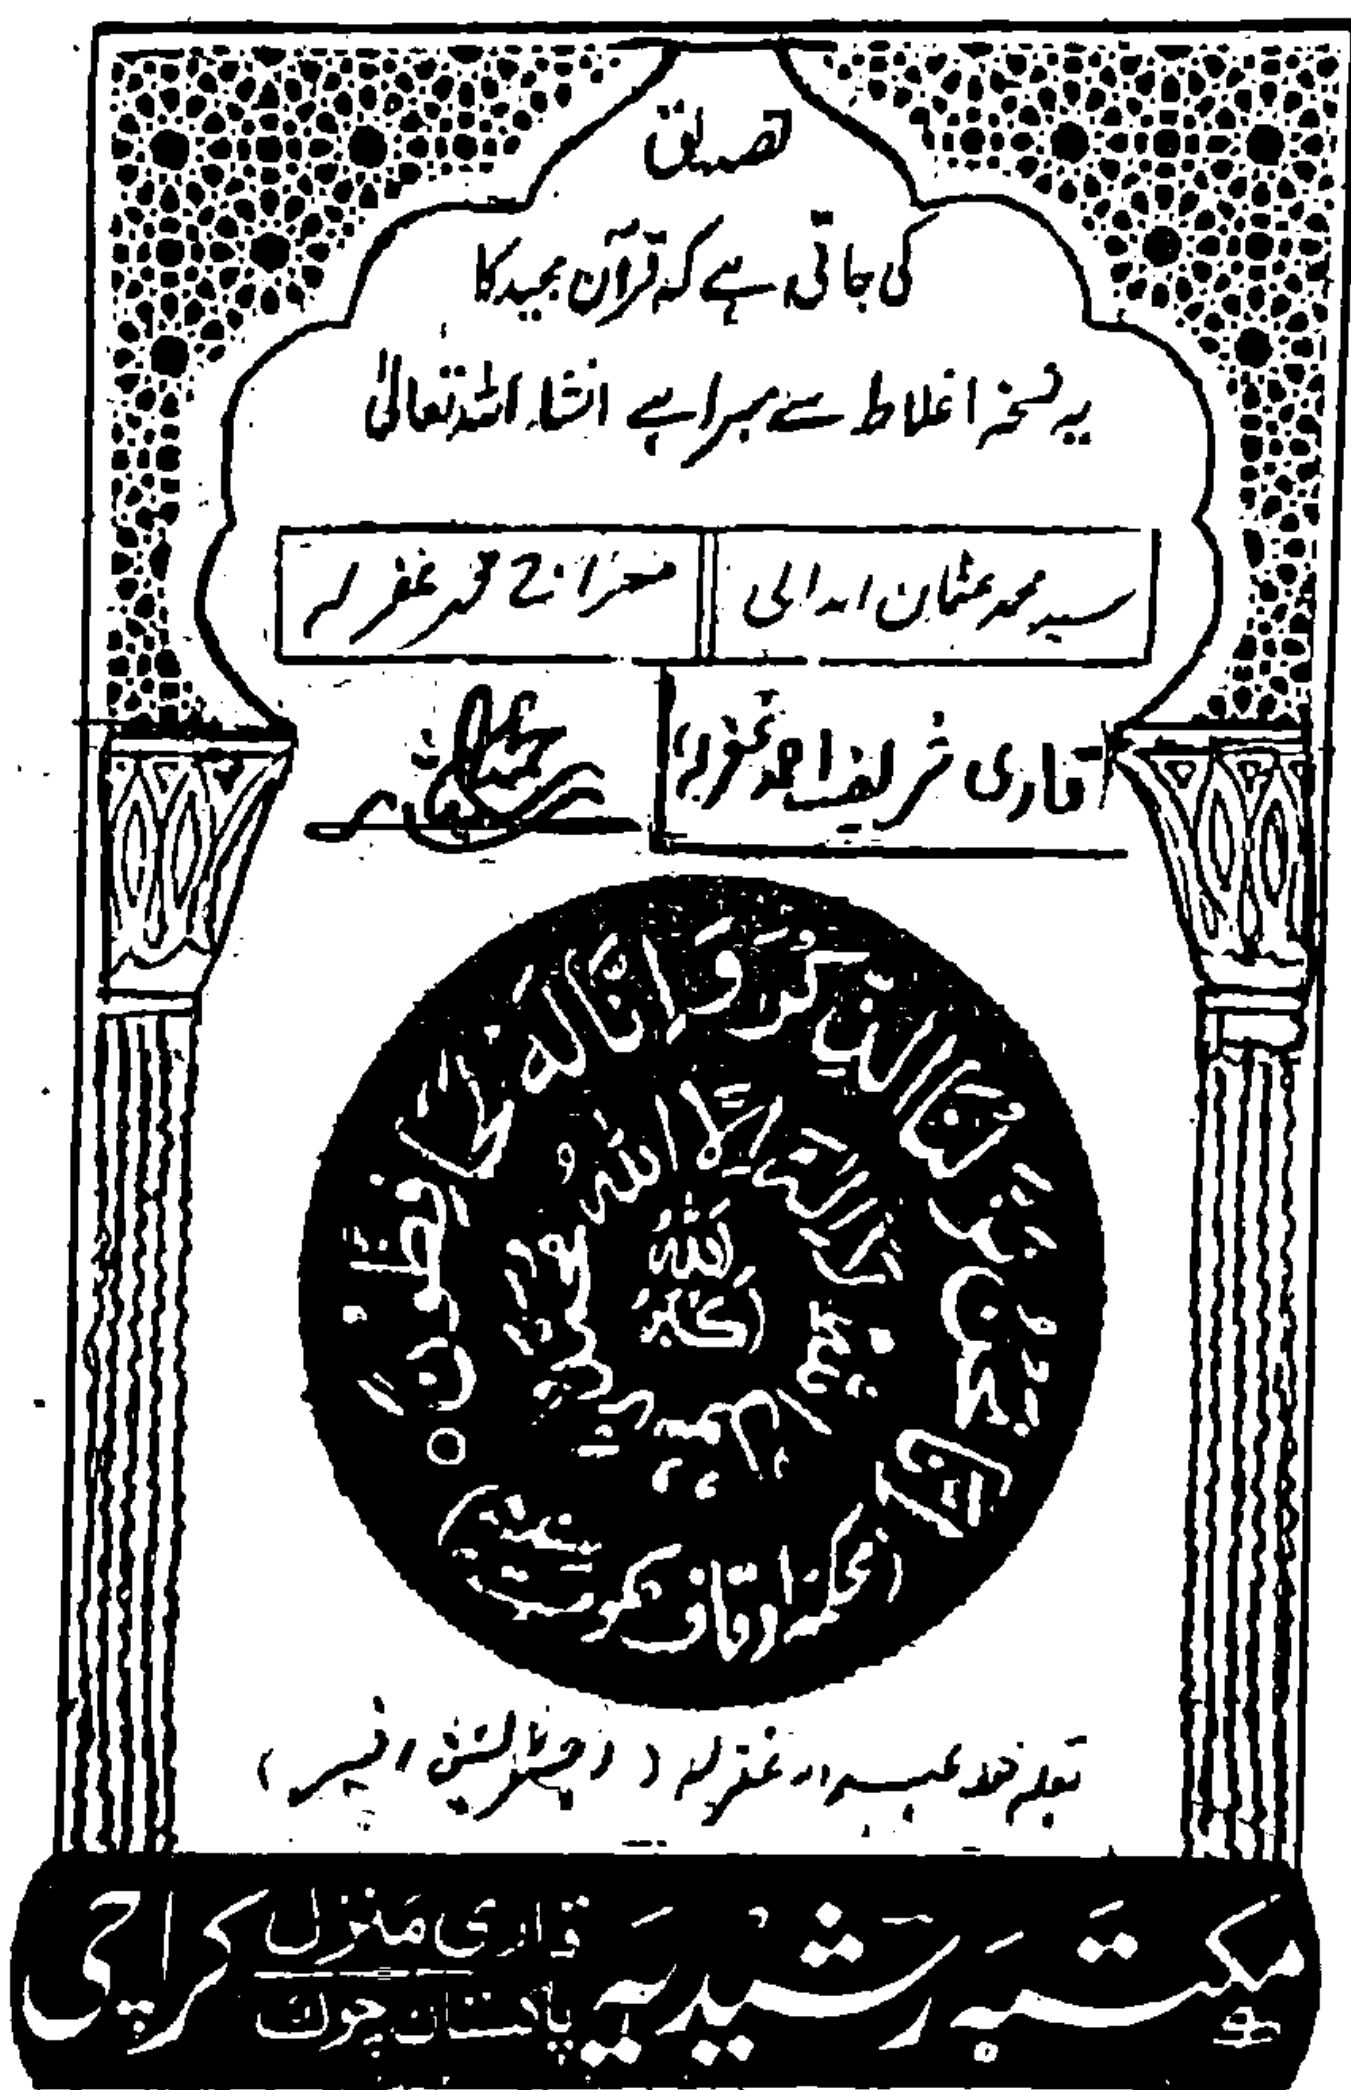 تصدیق
کی جاتی ہے کہ قرآن مجید کا
یہ نسخہ اغلاط سے مبرا ہے انشاء اللہ تعالیٰ
سید محمد عثمان ابدالی
غفرلہ
قاری شریف احمد غفرلہ
اِنَّا نَحْنُ نَزَّلْنَا الذِّكْرَ وَاِنَّا لَهٗ لَحٰفِظُوْنَ
لا الہ الا اللہ
اللہ اکبر
(محکمہ اوقاف حکومت سندھ)
بقلم خود غفرلہ (رجسٹریشن افسر)
مکتبہ رشیدیہ قاری منزل پاکستان چوک کراچی